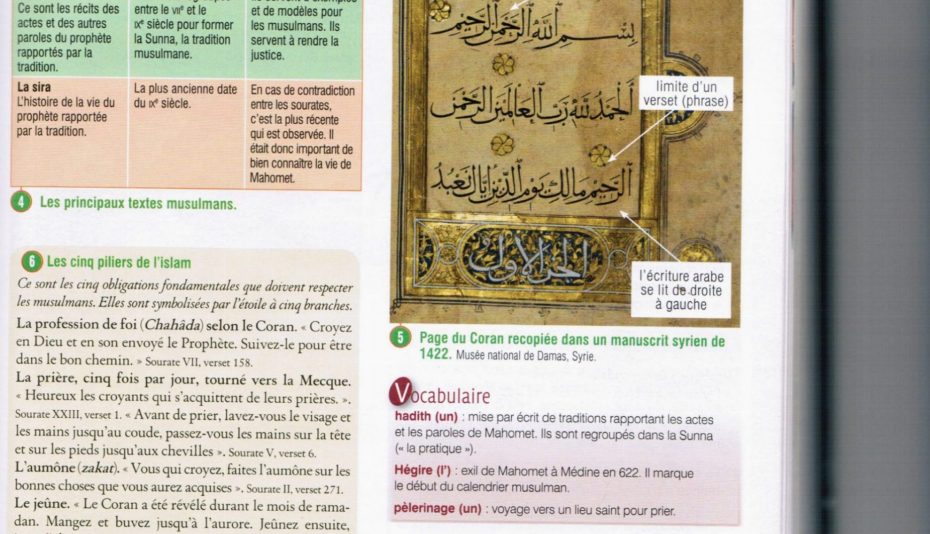 Ce sont les récits des
actes et des autres
paroles du prophète
rapportés par la
tradition.
entre le VIIe et le
IXe siècle pour former
la Sunna, la tradition
musulmane.
et de modèles pour
les musulmans. Ils
servent à rendre la
justice.
La sira
L'histoire de la vie du
prophète rapportée
par la tradition.
La plus ancienne date
du IXe siècle.
En cas de contradiction
entre les sourates,
c'est la plus récente
qui est observée. Il
était donc important de
bien connaître la vie de
Mahomet.
4 Les principaux textes musulmans.
6 Les cinq piliers de l'islam
Ce sont les cinq obligations fondamentales que doivent respecter
les musulmans. Elles sont symbolisées par l'étoile à cinq branches.
La profession de foi (Chahâda) selon le Coran. « Croyez
en Dieu et en son envoyé le Prophète. Suivez-le pour être
dans le bon chemin. » Sourate VII, verset 158.
La prière, cinq fois par jour, tourné vers la Mecque.
« Heureux les croyants qui s'acquittent de leurs prières. ».
Sourate XXIII, verset 1. « Avant de prier, lavez-vous le visage et
les mains jusqu'au coude, passez-vous les mains sur la tête
et sur les pieds jusqu'aux chevilles ». Sourate V, verset 6.
L'aumône (zakat). « Vous qui croyez, faites l'aumône sur les
bonnes choses que vous aurez acquises ». Sourate II, verset 271.
Le jeûne. « Le Coran a été révélé durant le mois de rama-
dan. Mangez et buvez jusqu'à l'aurore. Jeûnez ensuite,
بسم الله الرحمن الرحيم
الحمد لله رب العالمين الرحمن
الرحيم مالك يوم الدين اياك نعبد
الجزء الأول
limite d'un
verset (phrase)
l'écriture arabe
se lit de droite
à gauche
5 Page du Coran recopiée dans un manuscrit syrien de
1422. Musée national de Damas, Syrie.
Vocabulaire
hadith (un) : mise par écrit de traditions rapportant les actes
et les paroles de Mahomet. Ils sont regroupés dans la Sunna
(« la pratique »).
Hégire (l') : exil de Mahomet à Médine en 622. Il marque
le début du calendrier musulman.
pèlerinage (un) : voyage vers un lieu saint pour prier.